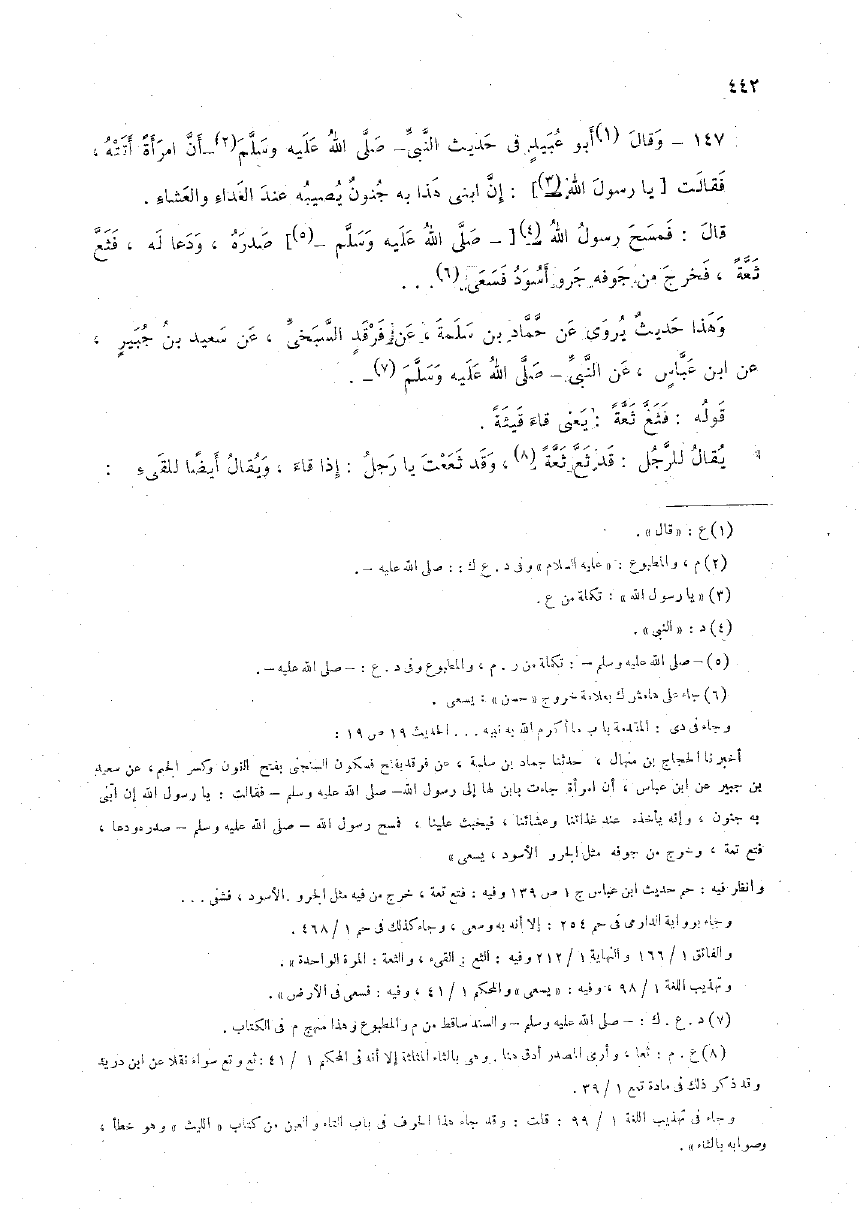 ٤٤٢
١٤٧ – وَقالَ (١) أَبو عُبَيدٍ فى حَديث النَّبِىِّ – صَلَّى اللهُ عَلَيه وَسَلَّمَ (٢) – أَنَّ امرَأَةً أَتَتْهُ ،
فَقالَت [ يا رسولَ اللهِ (٣) ] : إنَّ ابنى هَذا به جُنونٌ يُصيبُه عندَ الغَداءِ والعَشاءِ .
قالَ : فَمسَحَ رسولُ اللهُ (٤) [ – صَلَّى اللهُ عَلَيه وَسَلَّم – (٥) ] صَدرَهُ ، وَدَعا لَه ، فَثَعَّ
ثَعَّةً ، فَخرجَ من جَوفه جَرو أَسْوَدُ فَسَعَى (٦) . . .
وَهَذا حَديثٌ يُروَى عَن حَّمَّاد بن سَلَمةَ ، عَن فَرْقَدٍ السَّبَخىِّ ، عَن سَعيد بنُ جُبَيرٍ ،
عن ابن عَبَّاسٍ ، عَن النَّبِىِّ – صَلَّى اللهُ عَلَيه وَسَلَّمَ (٧) – .
قَولُه : فَثَعَّ ثَعَّةً : يَعْنى قاءَ قَيئَةً .
يُقالُ للرَّجُلِ : قَد ثَعَّ ثَعَّةً (٨) ، وَقَد ثَعَعْتَ يا رَجلُ : إذا قاءَ ، وَيُقالُ أَيضًا للقَىءِ :
(١) ع : «قال» .
(٢) م ، والمطبوع : «عليه السلام» وفى د . ع ك : : صلى الله عليه – .
(٣) «يا رسول الله» : تكملة من ع .
(٤) د : «النبى» .
(٥) – صلى الله عليه وسلم – : تكملة من ر . م ، والمطبوع وفى د . ع : – صلى الله عليه – .
(٦) جاء على هامش ك بعلامة خروج «حسن» : يسعى .
وجاء فى دى : المقدمة باب ما أكرم الله به نبيه . . . الحديث ١٩ ص ١٩ :
أخبرنا الحجاج بن منهال ، حدثنا حماد بن سلمة ، عن فرقد بفتح فسكون السنجى بفتح النون وكسر الجيم ، عن سعيد
بن جبير عن ابن عباس ، أن امرأة جاءت بابن لها إلى رسول الله – صلى الله عليه وسلم – فقالت : يا رسول الله إن ابنى
به جنون ، وإنه يأخذه عند غذائنا وعشائنا ، فيخبث علينا ، فمسح رسول الله – صلى الله عليه وسلم – صدره ودعا ،
فتع تعة ، وخرج من جوفه مثل الجرو الأسود ، يسعى»
وانظر فيه : حم حديث ابن عباس ج ١ ص ١٣٩ وفيه : فتع تعة ، خرج من فيه مثل الجرو الأسود ، فشى . . .
وجاء برواية الدارمى فى حم ٢٥٤ : إلا أنه به وسعى ، وجاء كذلك فى حم ١ / ٤٦٨ .
والفائق ١ / ١٦٦ والنهاية ١ / ٢١٢ وفيه : الثع : القىء ، والثعة : المرة الواحدة» .
وتهذيب اللغة ١ / ٩٨ ، وفيه : «يسعى» والمحكم ١ / ٤١ ، وفيه : فسعى فى الأرض» .
(٧) د . ع . ك : – صلى الله عليه وسلم – والسند ساقط من م والمطبوع وهذا منهج م فى الكتاب .
(٨) ع . م : ثعا ، وأرى المصدر أدق هنا . وهى بالثاء المثلثة إلا أنه فى المحكم ١ / ٤١ : ثع وتع سواء نقلا عن ابن دريد
وقد ذكر ذلك فى مادة تعع ١ / ٣٩ .
وجاء فى تهذيب اللغة ١ / ٩٩ : قلت : وقد جاء هذا الحرف فى باب التاء والعين من كتاب «الليث» وهو خطأ ،
وصوابه بالثاء» .